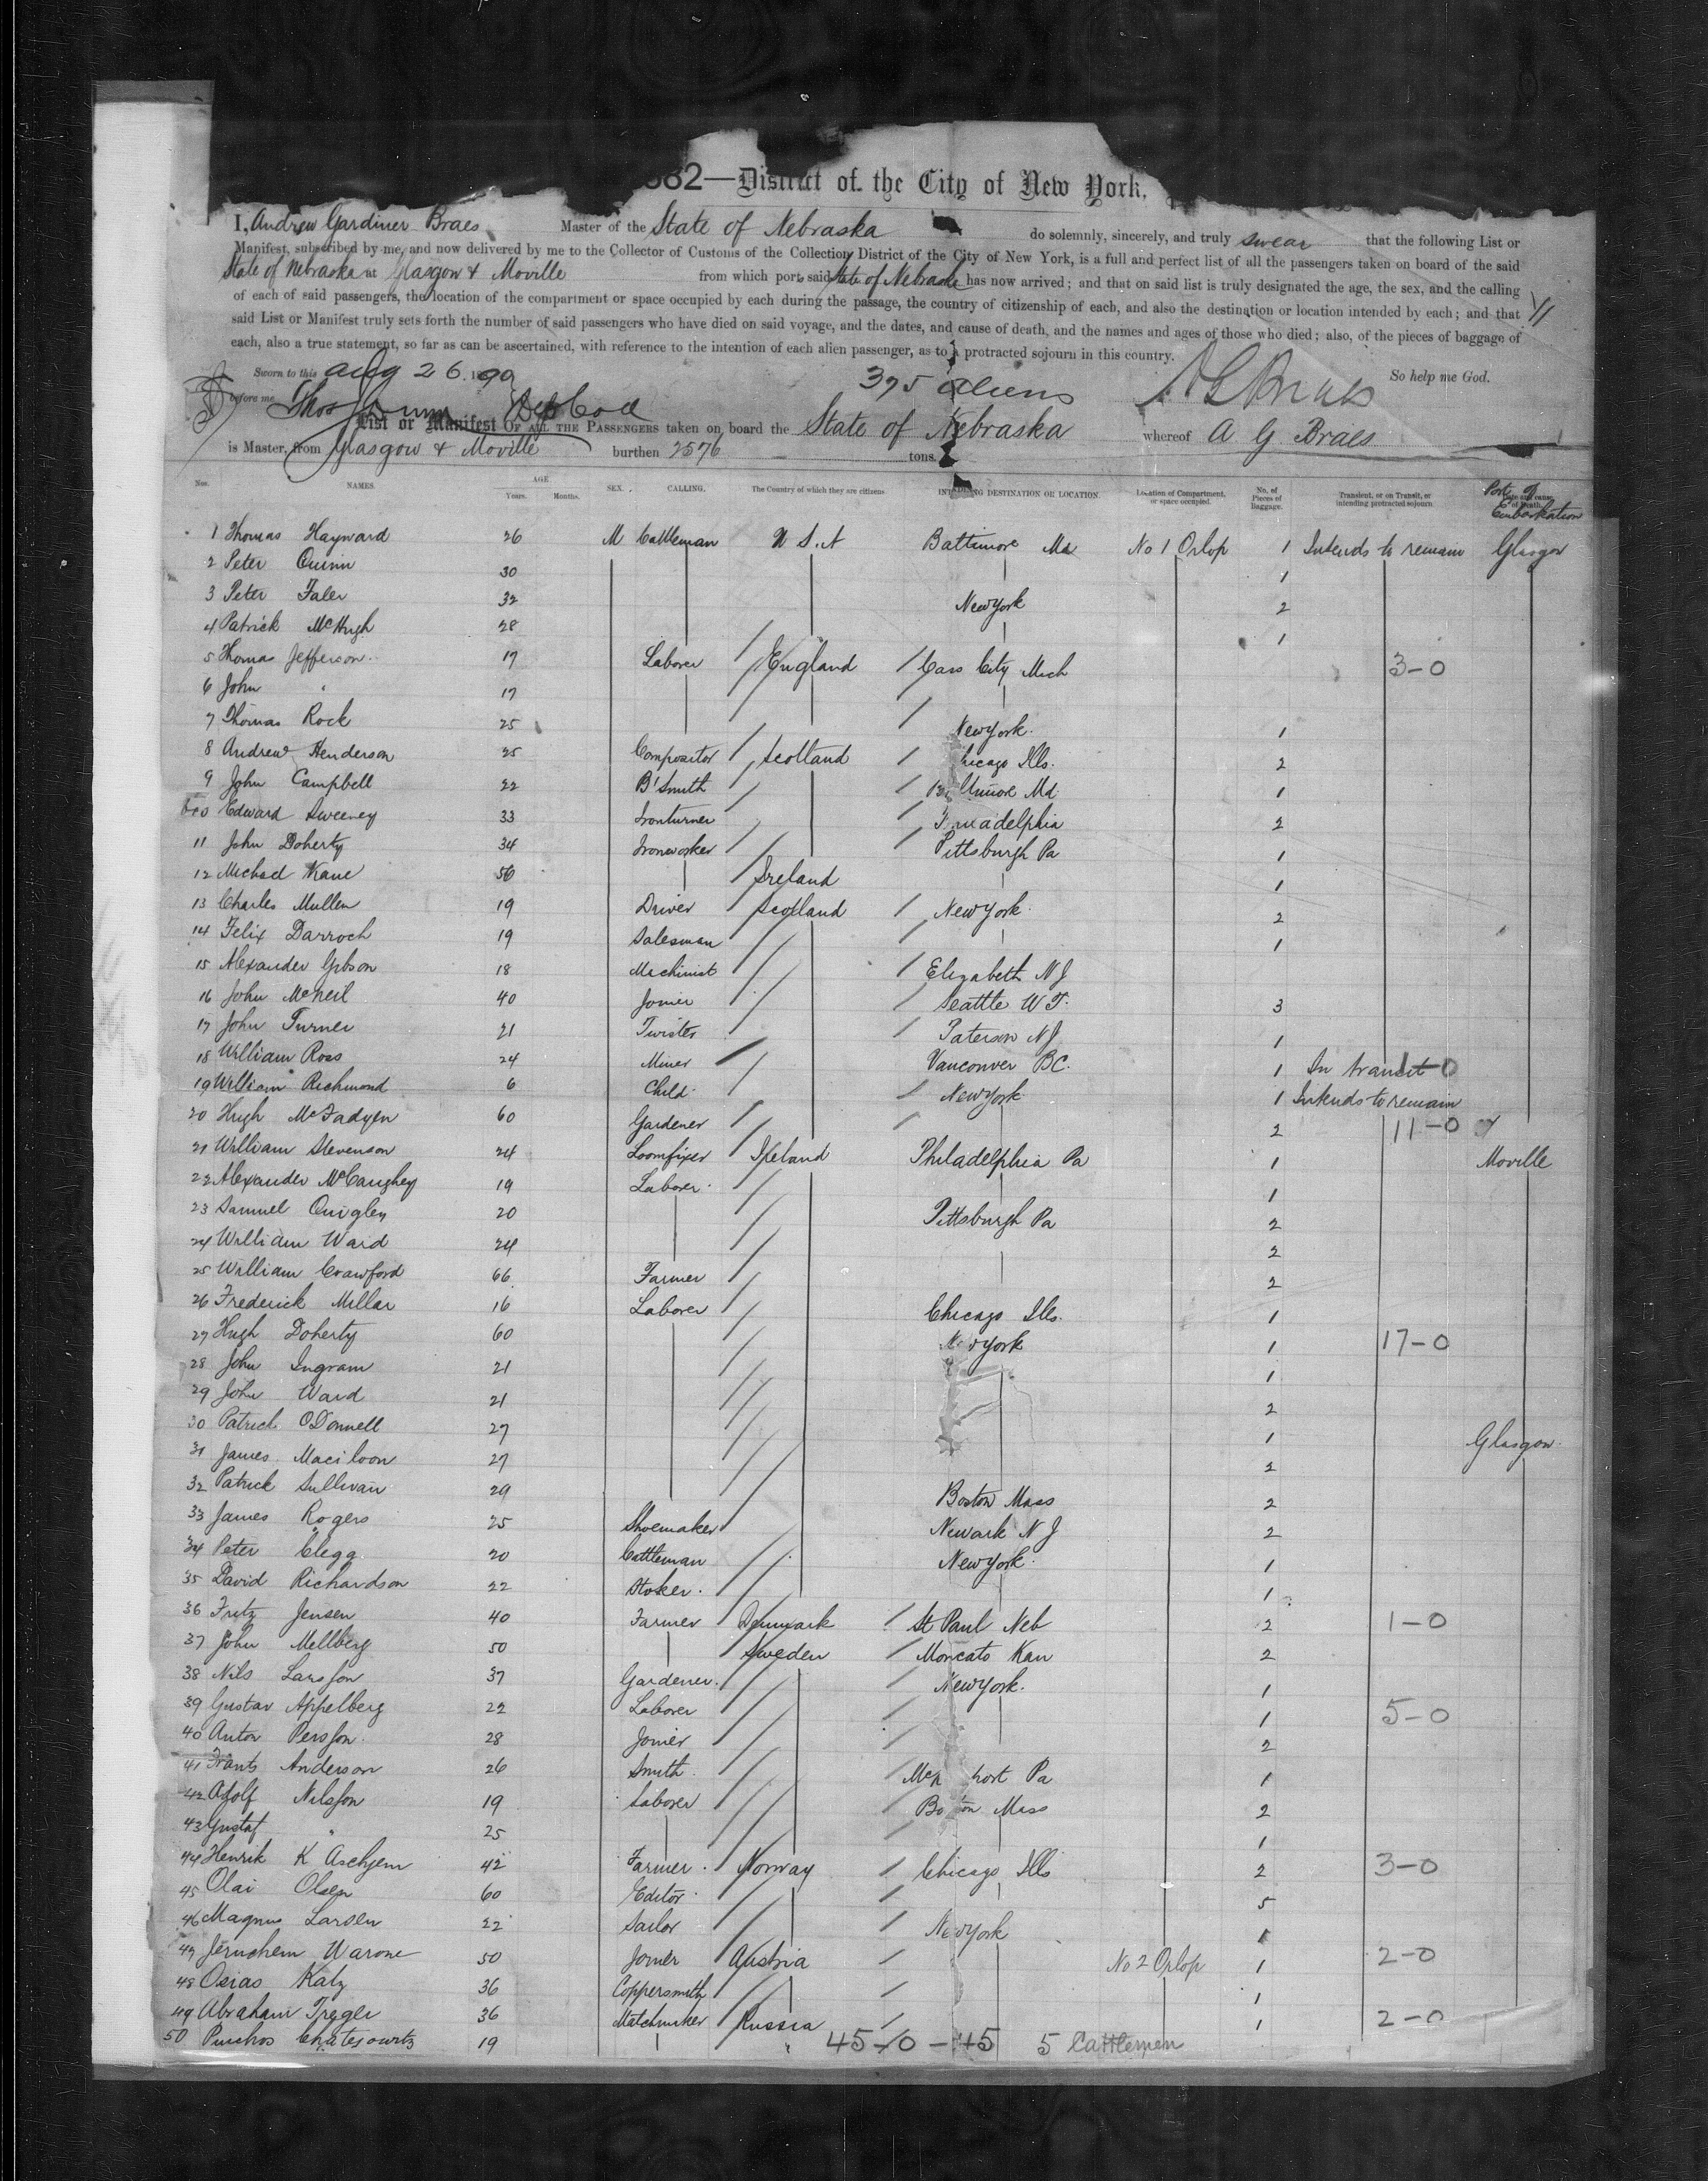 882—District of the City of New York,
I, Andrew Gardiner Braes Master of the State of Nebraska do solemnly, sincerely, and truly swear that the following List or
Manifest, subscribed by me, and now delivered by me to the Collector of Customs of the Collection District of the City of New York, is a full and perfect list of all the passengers taken on board of the said
State of Nebraska at Glasgow & Moville from which port said State of Nebraska has now arrived; and that on said list is truly designated the age, the sex, and the calling
of each of said passengers, the location of the compartment or space occupied by each during the passage, the country of citizenship of each, and also the destination or location intended by each; and that
said List or Manifest truly sets forth the number of said passengers who have died on said voyage, and the dates, and cause of death, and the names and ages of those who died; also, of the pieces of baggage of
each, also a true statement, so far as can be ascertained, with reference to the intention of each alien passenger, as to a protracted sojourn in this country.
Sworn to this Aug 26 1890 375 Aliens A G Braes So help me God.
before me Thos Dunn Dep Coll
List or Manifest OF ALL THE PASSENGERS taken on board the State of Nebraska whereof A G Braes
is Master, from Glasgow & Moville burthen 2576 tons.
Nos. NAMES. AGE Years. Months. SEX. CALLING. The Country of which they are citizens. INTENDING DESTINATION OR LOCATION. Location of Compartment, or space occupied. No. of Pieces of Baggage. Transient, or on Transit, or intending protracted sojourn. Port of Embarkation
1 Thomas Hayward 26 M Cattleman U S. A Baltimore Md No 1 Orlop 1 Intends to remain Glasgow
2 Peter Quinn 30 1
3 Peter Faler 32 New York 2
4 Patrick McHugh 28 1
5 Thomas Jefferson 17 Laborer England Cass City Mich 3-0
6 John " 17
7 Thomas Rock 25 New York 1
8 Andrew Henderson 25 Compositor Scotland Chicago Ills. 2
9 John Campbell 22 B'Smith Baltimore Md 1
10 Edward Sweeney 33 Ironturner Philadelphia 2
11 John Doherty 34 Ironworker Pittsburgh Pa 1
12 Michael Kane 56 Ireland 1
13 Charles Mullen 19 Driver Scotland New York 2
14 Felix Darroch 19 Salesman 1
15 Alexander Gibson 18 Machinist Elizabeth N J
16 John McNeil 40 Joiner Seattle W T. 3
17 John Turner 21 Twister Paterson N J 1
18 William Ross 24 Miner Vancouver BC. 1 In transit 1-0
19 William Richmond 6 Child New York 1 Intends to remain
20 Hugh McFadyen 60 Gardener 2 11-0
21 William Stevenson 24 Loomfixer Ireland Philadelphia Pa 1 Moville
22 Alexander McCaughey 19 Laborer 1
23 Samuel Quigley 20 Pittsburgh Pa 2
24 William Ward 24 2
25 William Crawford 66 Farmer 2
26 Frederick Millar 16 Laborer Chicago Ills. 1
27 Hugh Doherty 60 New York 1 17-0
28 John Ingram 21 1
29 John Ward 21 2
30 Patrick O'Donnell 27 1 Glasgow
31 James 27 2
32 Patrick Sullivan 29 Boston Mass 2
33 James Rogers 25 Shoemaker Newark N J 2
34 Peter Clegg 20 Cattleman New York 1
35 David Richardson 22 Stoker 1
36 Fritz Jensen 40 Farmer Denmark St Paul Neb 2 1-0
37 John Mellberg 50 Sweden Moncato Kan 2
38 Nils Larsson 37 Gardener New York 1
39 Gustav Appelberg 22 Laborer 1 5-0
40 Anton Persson 28 Joiner 2
41 Frants Anderson 26 Smith port Pa 1
42 Adolf Nilsson 19 Laborer Boston Mass 2
43 Gustaf " 25 1
44 Henrik K Aschjem 42 Farmer Norway Chicago Ills 2 3-0
45 Olai Olsen 60 Editor 5
46 Magnus Larsen 22 Sailor New York 1
47 Jeruchem Warone 50 Joiner Austria No 2 Orlop 1 2-0
48 Osias Katz 36 Coppersmith 1
49 Abraham Treger 36 Matchmaker Russia 1 2-0
50 19 45-0-45 5 Cattlemen